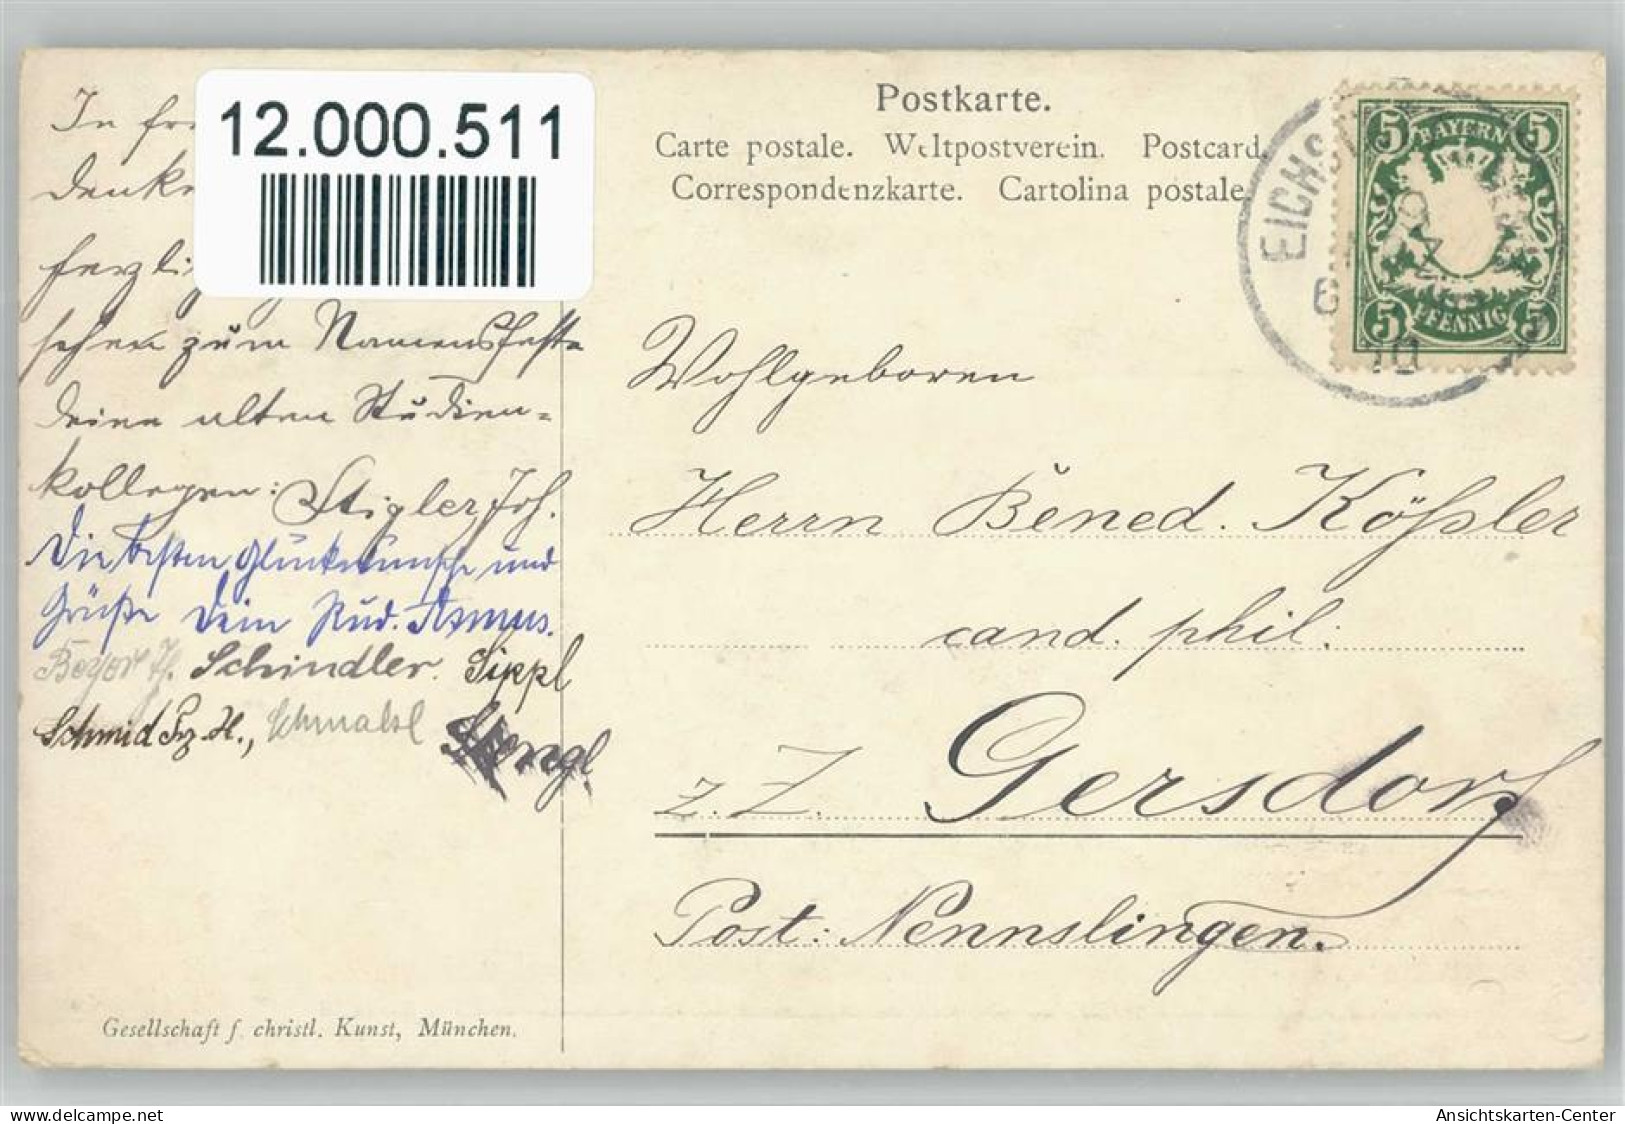 12.000.511
In
denk
herzli
sehen zum Namensfeste
deine alten Studien-
kollegen: Stigler Joh.
Die besten Glückwünsche und
Grüße Dein Rud. Asmus.
Beyer Schindler. Sippl
Schmid Frz. H., Schmalzl
Stengl
Postkarte.
Carte postale. Weltpostverein. Postcard.
Correspondenzkarte. Cartolina postale.
EICHST
10
5 BAYERN 5
5 PFENNIG 5
Wohlgeboren
Herrn Bened. Kößler
cand. phil.
z. Z. Gersdorf
Post: Nennslingen.
Gesellschaft f. christl. Kunst, München.
oldthing.de
Ansichtskarten-Center